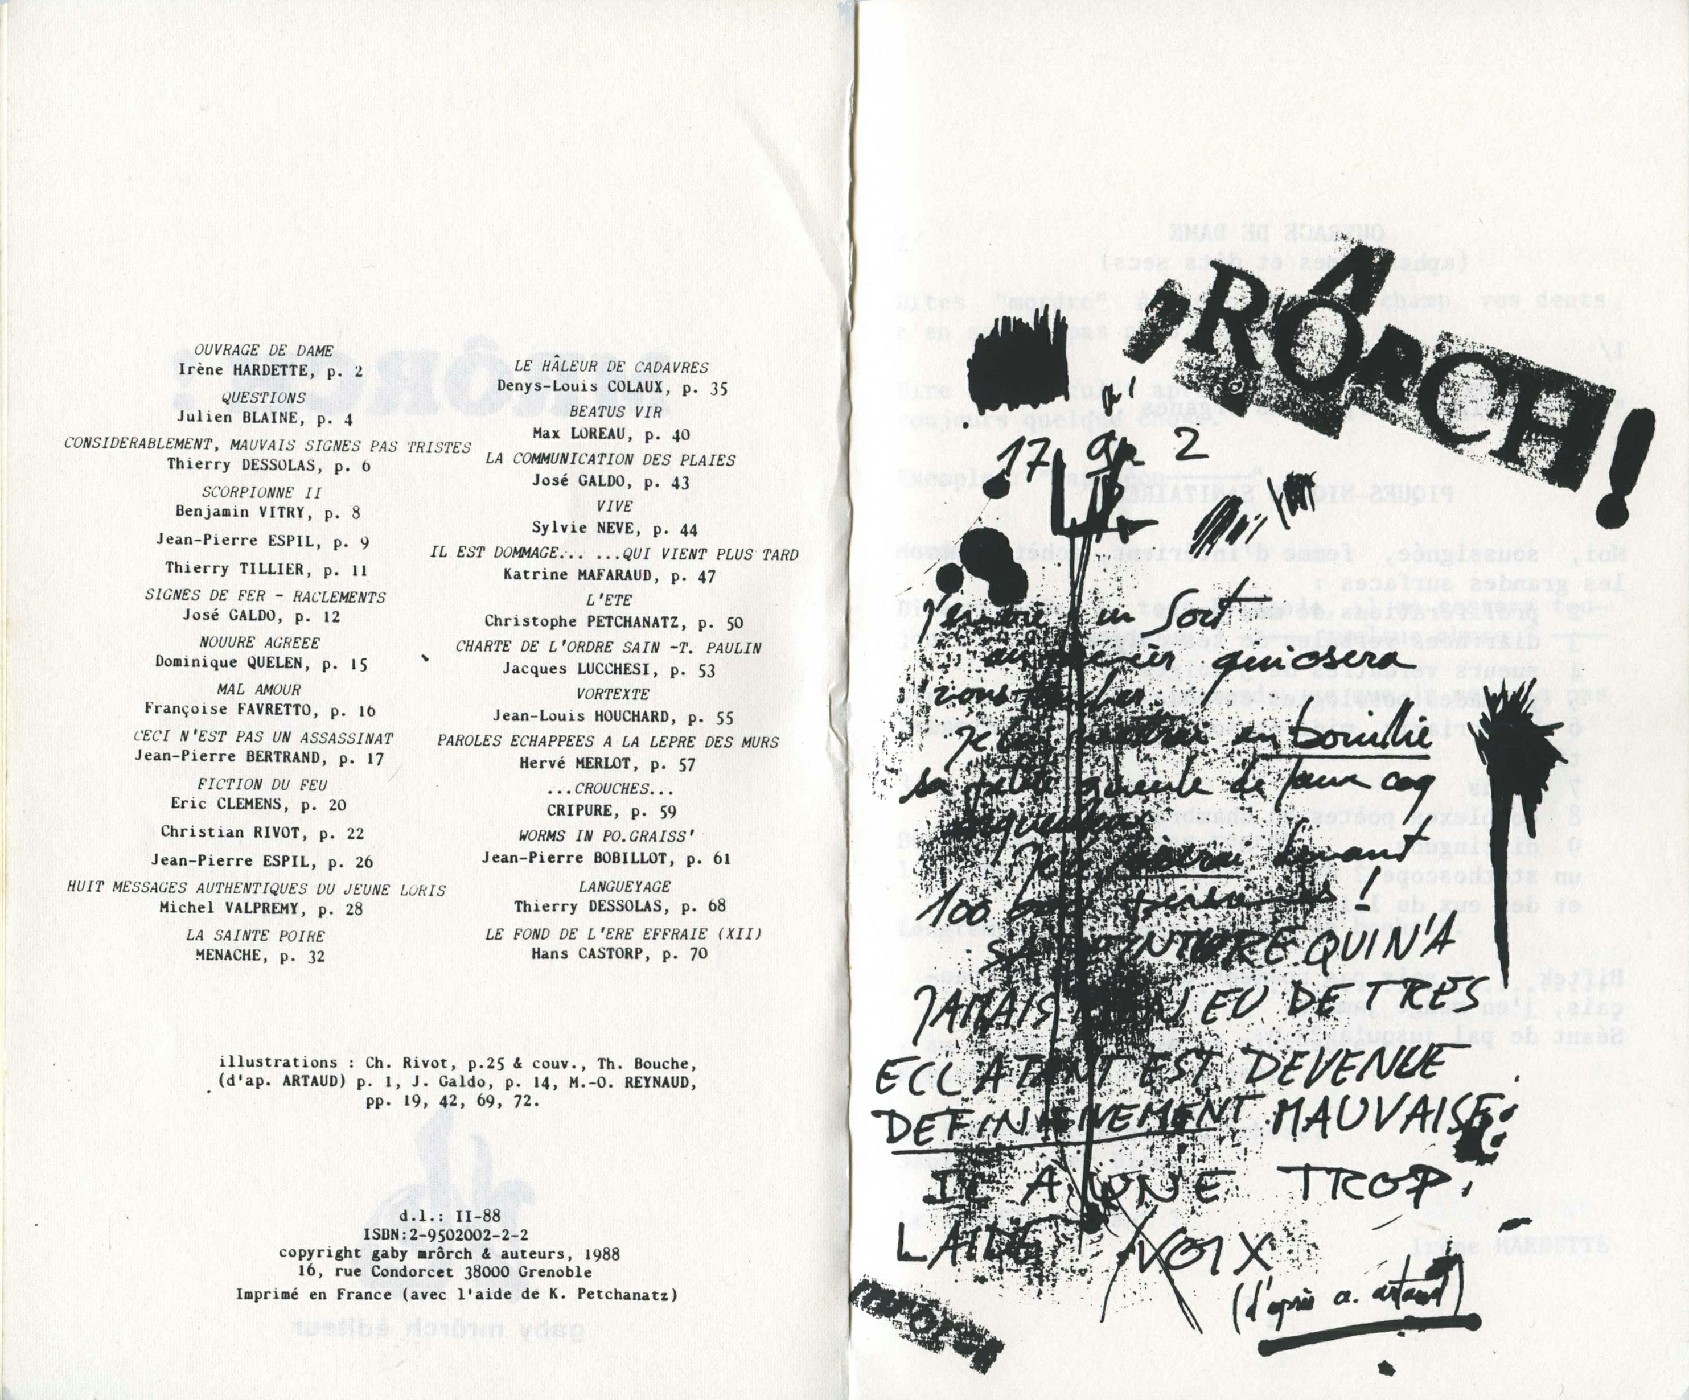 OUVRAGE DE DAME
Irène HARDETTE, p. 2
QUESTIONS
Julien BLAINE, p. 4
CONSIDERABLEMENT, MAUVAIS SIGNES PAS TRISTES
Thierry DESSOLAS, p. 6
SCORPIONNE II
Benjamin VITRY, p. 8
Jean-Pierre ESPIL, p. 9
Thierry TILLIER, p. 11
SIGNES DE FER - RACLEMENTS
José GALDO, p. 12
NOUURE AGREEE
Dominique QUELEN, p. 15
MAL AMOUR
Françoise FAVRETTO, p. 16
CECI N'EST PAS UN ASSASSINAT
Jean-Pierre BERTRAND, p. 17
FICTION DU FEU
Eric CLEMENS, p. 20
Christian RIVOT, p. 22
Jean-Pierre ESPIL, p. 26
HUIT MESSAGES AUTHENTIQUES DU JEUNE LORIS
Michel VALPREMY, p. 28
LA SAINTE POIRE
MENACHE, p. 32
LE HÂLEUR DE CADAVRES
Denys-Louis COLAUX, p. 35
BEATUS VIR
Max LOREAU, p. 40
LA COMMUNICATION DES PLAIES
José GALDO, p. 43
VIVE
Sylvie NEVE, p. 44
IL EST DOMMAGE... ...QUI VIENT PLUS TARD
Katrine MAFARAUD, p. 47
L'ETE
Christophe PETCHANATZ, p. 50
CHARTE DE L'ORDRE SAIN -T. PAULIN
Jacques LUCCHESI, p. 53
VORTEXTE
Jean-Louis HOUCHARD, p. 55
PAROLES ECHAPPEES A LA LEPRE DES MURS
Hervé MERLOT, p. 57
...CROUCHES...
CRIPURE, p. 59
WORMS IN PO.GRAISS'
Jean-Pierre BOBILLOT, p. 61
LANGUEYAGE
Thierry DESSOLAS, p. 68
LE FOND DE L'ERE EFFRAIE (XII)
Hans CASTORP, p. 70
illustrations : Ch. Rivot, p.25 & couv., Th. Bouche,
(d'ap. ARTAUD) p. 1, J. Galdo, p. 14, M.-O. REYNAUD,
pp. 19, 42, 69, 72.
d.l.: II-88
ISBN:2-9502002-2-2
copyright gaby mrôrch & auteurs, 1988
16, rue Condorcet 38000 Grenoble
Imprimé en France (avec l'aide de K. Petchanatz)
RÔRCH!
17 2
un Sort
qui osera
vous
je en bouillie
sa petite gueule de faux coq
devant
100
QUI N'A
JAMAIS RIEN EU DE TRES
ECLATANT EST DEVENUE
DEFINITIVEMENT MAUVAISE:
IL A UNE TROP
LAIDE VOIX
(d'après a. artaud)